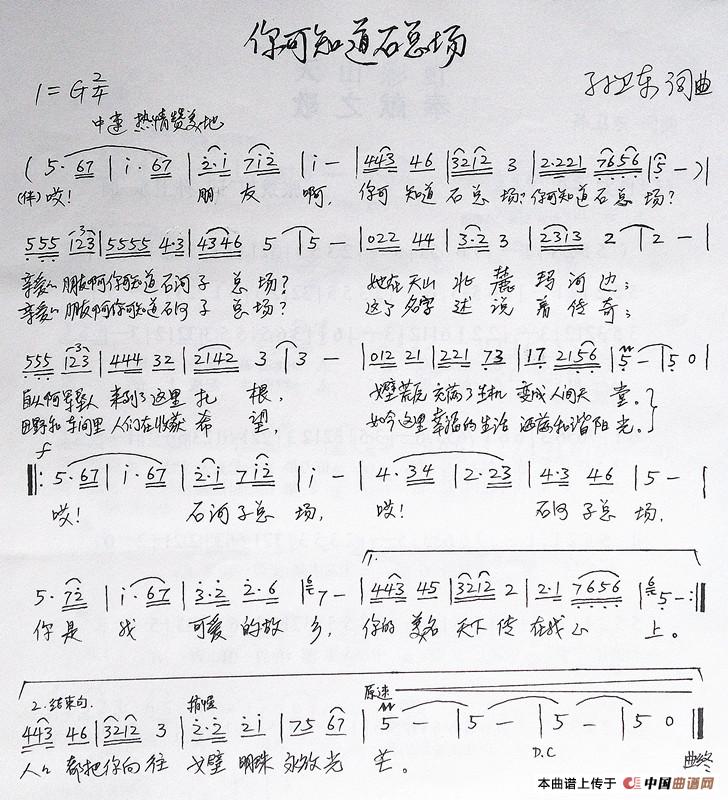 你可知道石总场
1=G 2/4
孙卫东 词曲
中速 热情赞美地
( 5· 67 | i· 67 | 2·i 7i2 | i - | 443 46 | 3212 3 | 2·221 7656 | 5 - ) |
(伴) 哎! 朋友啊, 你可知道石总场? 你可知道石总场?
555 123 | 5555 4·3 | 4346 5 | 5 - | 022 44 | 3·2 3 | 2313 2 | 2 - |
亲爱的朋友啊你可知道石河子总场? 她在天山北麓玛河边;
亲爱的朋友啊你可知道石河子总场? 这个名字述说着传奇;
555 123 | 444 32 | 2142 3 | 3 - | 012 21 | 221 73 | 17 2156 | 5 - | 5 0 |
自从军垦人来到了这里扎根, 戈壁荒原充满了生机变成人间天堂。
田野和车间里人们在收获希望, 如今这里幸福的生活洒满和谐阳光。
f
5· 67 | i· 67 | 2·i 7i2 | i - | 4· 34 | 2· 23 | 4·3 46 | 5 - |
哎! 石河子总场, 哎! 石河子总场,
5· 72 | i· 67 | 3·2 2·6 | 7 - | 443 45 | 3212 2 | 2·1 7656 | 5 - :||
1.
你是我可爱的故乡, 你的美名天下传在我心上。
2. 结束句 稍慢 原速
443 46 | 3212 3 | 2·2 2i | 75 67 | 5 - | 5 - | 5 - | 5 0 ||
人人都把你向往 戈壁明珠永放光芒。
D.C 曲终
本曲谱上传于 中国曲谱网